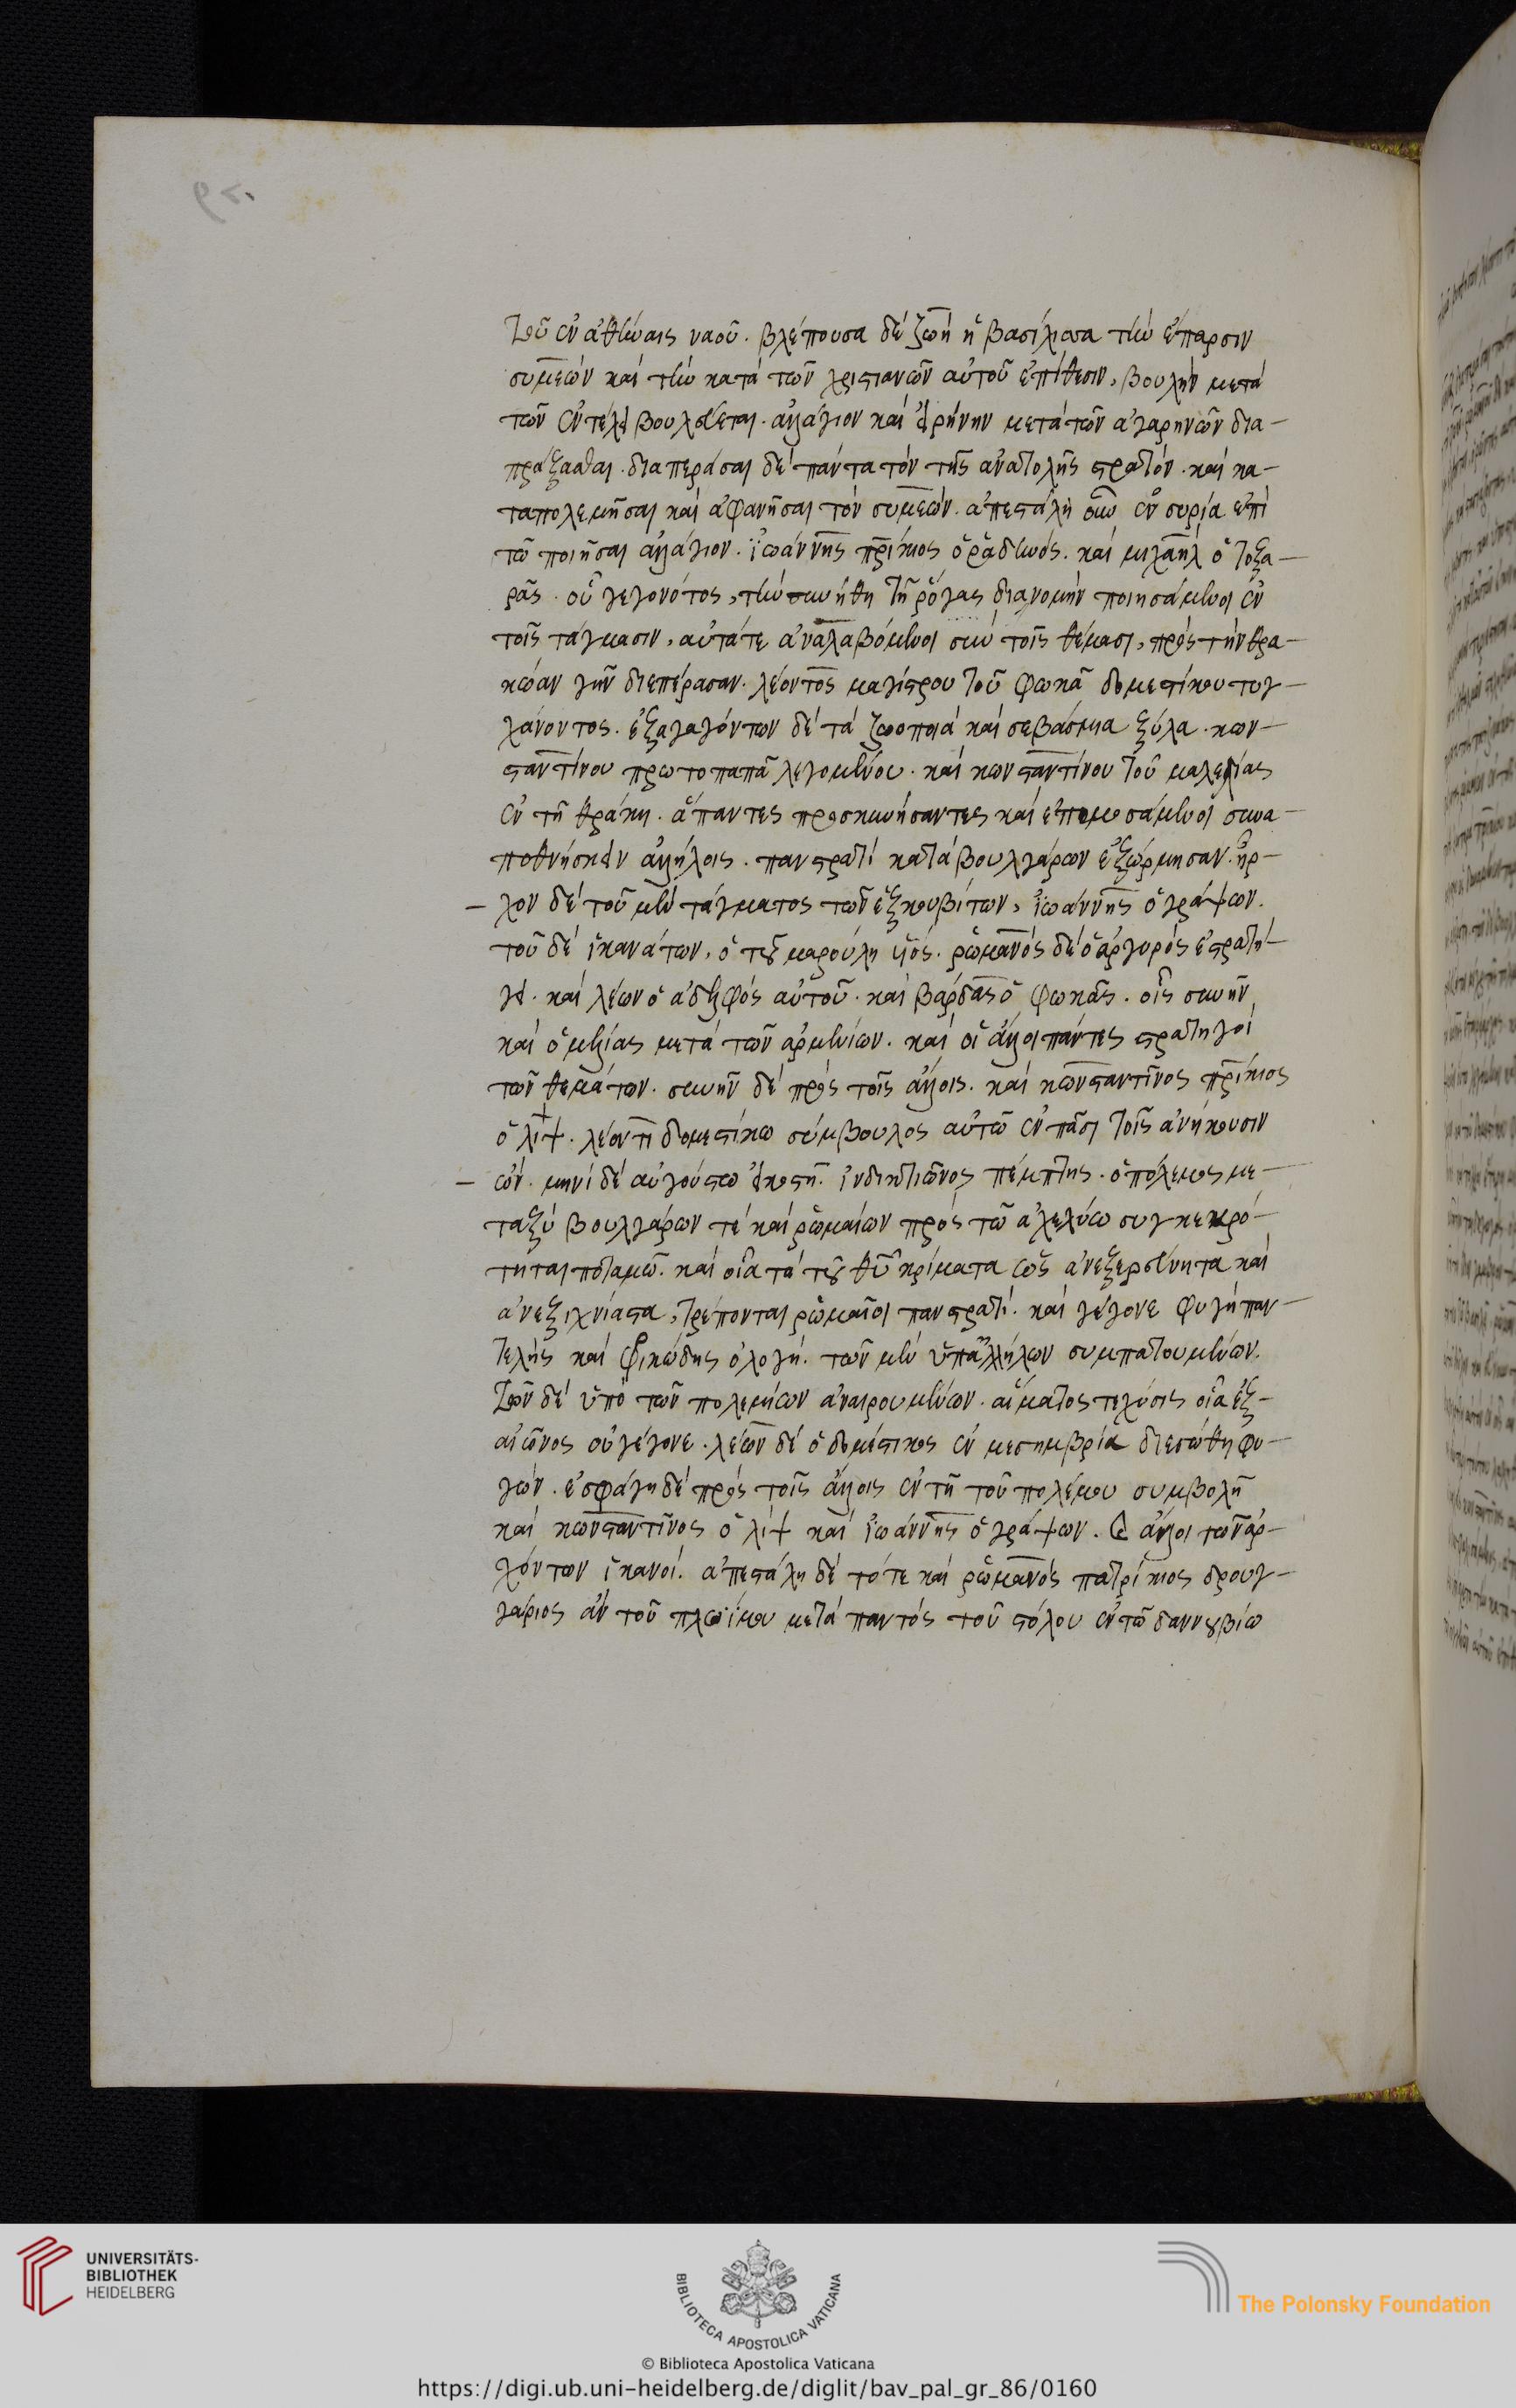 τοῦ ἐν ἀθήναις ναοῦ. βλέπουσα δὲ ζωὴ ἡ βασίλισσα τὴν ἔπαρσιν
συμεὼν καὶ τὴν κατὰ τῶν χριστιανῶν αὐτοῦ ἐπίθεσιν, βουλὴν μετὰ
τῶν ἐν τέλει βουλεύεται. ἀλλάγιον καὶ εἰρήνην μετὰ τῶν ἀγαρηνῶν δια-
πράξασθαι. διαπεράσαι δὲ πάντα τὸν τῆς ἀνατολῆς στρατόν. καὶ κα-
ταπολεμῆσαι καὶ ἀφανῆσαι τὸν συμεών. ἀπεστάλη οὖν ἐν συρία ἐπὶ
τῶ ποιῆσαι ἀλλάγιον. ἰωάννης πατρίκιος ὁ ῥαδινός. καὶ μιχαὴλ ὁ τοξα-
ρᾶς. οὗ γεγονότος, τὴν συνήθη τῆς ῥόγας διανομὴν ποιησάμενοι ἐν
τοῖς τάγμασιν, αὐτά τε ἀναλαβόμενοι σὺν τοῖς θέμασι, πρὸς τὴν θρα-
κώαν γῆν διεπέρασαν. λέοντος μαγίστρου τοῦ φωκᾶ δομεστίκου τυγ-
χάνοντος. ἐξαγαγόντων δὲ τὰ ζωοποιὰ καὶ σεβάσμια ξύλα. κων-
σταντίνου πρωτοπαπᾶ λεγομένου. καὶ κωνσταντίνου τοῦ μαλελίας
ἐν τῆ θράκη. ἅπαντες προσκυνήσαντες καὶ ἐπομοσάμενοι συνα-
ποθνήσκειν ἀλλήλοις. πανστρατὶ κατὰ βουλγάρων ἐξώρμησαν. ἦρ-
χον δὲ τοῦ μὲν τάγματος τῶν ἐξκουβίτων, ἰωάννης ὁ γράψων.
τοῦ δὲ ἱκανάτων, ὁ τοῦ μαρούλη υἱός. ῥωμανὸς δὲ ὁ ἀργυρὸς ἐστρατή-
γει. καὶ λέων ὁ ἀδελφὸς αὐτοῦ. καὶ βάρδας ὁ φωκᾶς. οἷς συνῆν
καὶ ὁ μελίας μετὰ τῶν ἀρμενίων. καὶ οἱ ἄλλοι πάντες στρατηγοὶ
τῶν θεμάτων. συνῆν δὲ πρὸς τοῖς ἄλλοις. καὶ κωνσταντῖνος πατρίκιος
ὁ λίψ. λέοντι δομεστίκω σύμβουλος αὐτῶ ἐν πᾶσι τοῖς ἀνήκουσιν
ὤν. μηνὶ δὲ αὐγούστω εἰκοστῆ. ἰνδικτιῶνος πέμπτης. ὁ πόλεμος με-
ταξὺ βουλγάρων τὲ καὶ ῥωμαίων πρὸς τῶ ἀχελώω συγκεκρό-
τηται ποταμῶ. καὶ οἷα τὰ τοῦ θυ κρίματα ὡς ἀνεξερεύνητα καὶ
ἀνεξιχνίαστα, τρέπονται ῥωμαῖοι πανστρατί. καὶ γέγονε φυγὴ παν-
τελὴς καὶ φρικώδης ὀλογή. τῶν μὲν ὑπ' ἀλλήλων συμπατουμένων.
τῶν δὲ ὑπὸ τῶν πολεμίων ἀναιρουμένων. αἵματος τε χύσις οἷα ἐξ-
αἰῶνος οὐ γέγονε. λέων δὲ ὁ δομέστικος ἐν μεσημβρία διεσώθη φυ-
γών. ἐσφάγη δὲ πρὸς τοῖς ἄλλοις ἐν τῆ τοῦ πολέμου συμβολῆ
καὶ κωνσταντῖνος ὁ λὶψ καὶ ἰωάννης ὁ γράψων. καὶ ἄλλοι τῶν ἀρ-
χόντων ἱκανοί. ἀπεστάλη δὲ τότε καὶ ῥωμανὸς πατρίκιος δρουγ-
γάριος ὢν τοῦ πλωΐμου μετὰ παντὸς τοῦ στόλου ἐν τῶ δαννουβίω
UNIVERSITÄTS-
BIBLIOTHEK
HEIDELBERG
BIBLIOTECA APOSTOLICA VATICANA
The Polonsky Foundation
© Biblioteca Apostolica Vaticana
https://digi.ub.uni-heidelberg.de/diglit/bav_pal_gr_86/0160